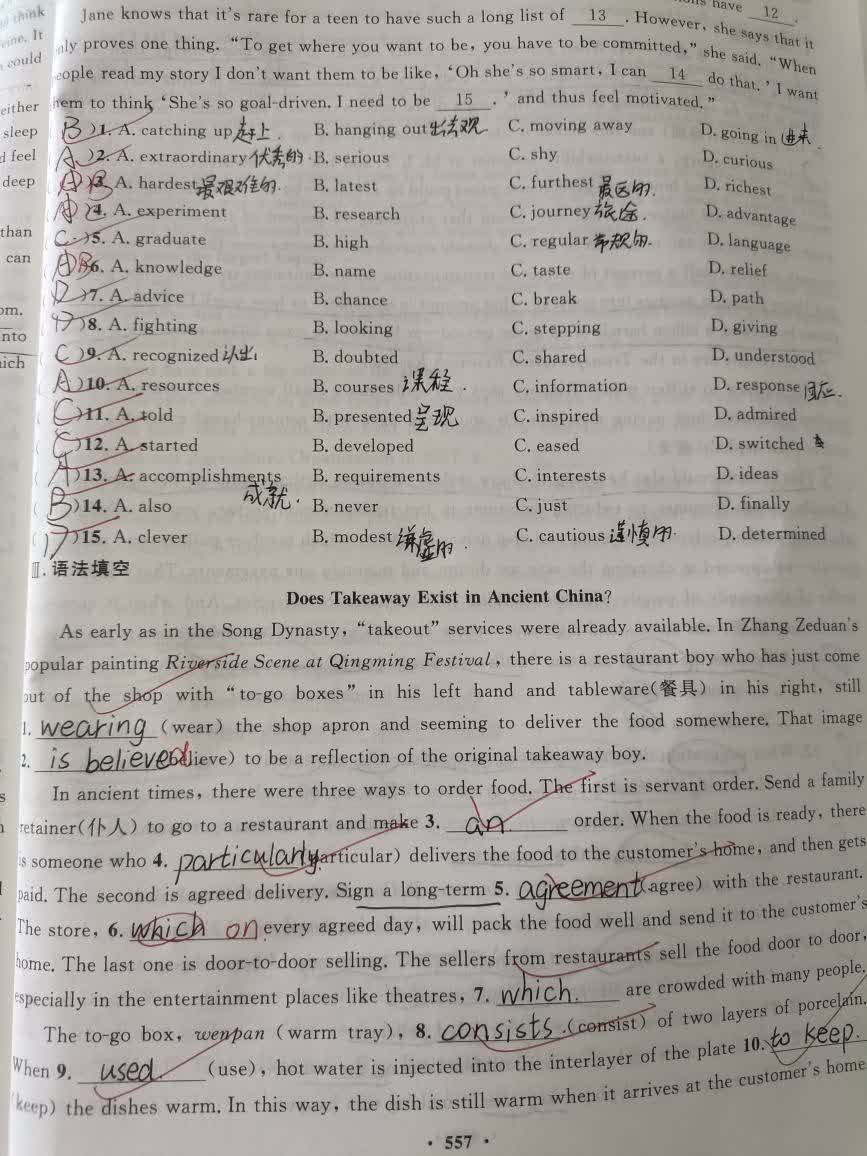 think
ns have 12 .
Jane knows that it's rare for a teen to have such a long list of 13 . However, she says that it
eine. It
only proves one thing. "To get where you want to be, you have to be committed," she said. "When
could
people read my story I don't want them to be like, 'Oh she's so smart, I can 14 do that.' I want
either
them to think 'She's so goal-driven. I need to be 15 .' and thus feel motivated."
sleep
B )1. A. catching up 赶上. B. hanging out 出去观 C. moving away D. going in 进来
d feel
A )2. A. extraordinary 优秀的 B. serious C. shy D. curious
deep
B 3. A. hardest 最艰难的. B. latest C. furthest 最远的. D. richest
A )4. A. experiment B. research C. journey 旅途. D. advantage
than
C )5. A. graduate B. high C. regular 常规的. D. language
can
B 6. A. knowledge B. name C. taste D. relief
D )7. A. advice B. chance C. break D. path
om.
D )8. A. fighting B. looking C. stepping D. giving
nto
C )9. A. recognized 认出 B. doubted C. shared D. understood
ich
A )10. A. resources B. courses 课程. C. information D. response 回应.
C )11. A. told B. presented 呈现 C. inspired D. admired
C )12. A. started B. developed C. eased D. switched
A )13. A. accomplishments 成就. B. requirements C. interests D. ideas
B )14. A. also B. never C. just D. finally
D )15. A. clever B. modest 谦虚的. C. cautious 谨慎的. D. determined
Ⅲ. 语法填空
Does Takeaway Exist in Ancient China?
As early as in the Song Dynasty, "takeout" services were already available. In Zhang Zeduan's
popular painting Riverside Scene at Qingming Festival, there is a restaurant boy who has just come
out of the shop with "to-go boxes" in his left hand and tableware(餐具) in his right, still
1. wearing (wear) the shop apron and seeming to deliver the food somewhere. That image
2. is believed (believe) to be a reflection of the original takeaway boy.
In ancient times, there were three ways to order food. The first is servant order. Send a family
retainer(仆人) to go to a restaurant and make 3. an order. When the food is ready, there
is someone who 4. particularly (particular) delivers the food to the customer's home, and then gets
paid. The second is agreed delivery. Sign a long-term 5. agreement (agree) with the restaurant.
The store, 6. which on every agreed day, will pack the food well and send it to the customer's
home. The last one is door-to-door selling. The sellers from restaurants sell the food door to door,
especially in the entertainment places like theatres, 7. which. are crowded with many people.
The to-go box, wenpan (warm tray), 8. consists. (consist) of two layers of porcelain.
When 9. used. (use), hot water is injected into the interlayer of the plate 10. to keep.
(keep) the dishes warm. In this way, the dish is still warm when it arrives at the customer's home
· 557 ·